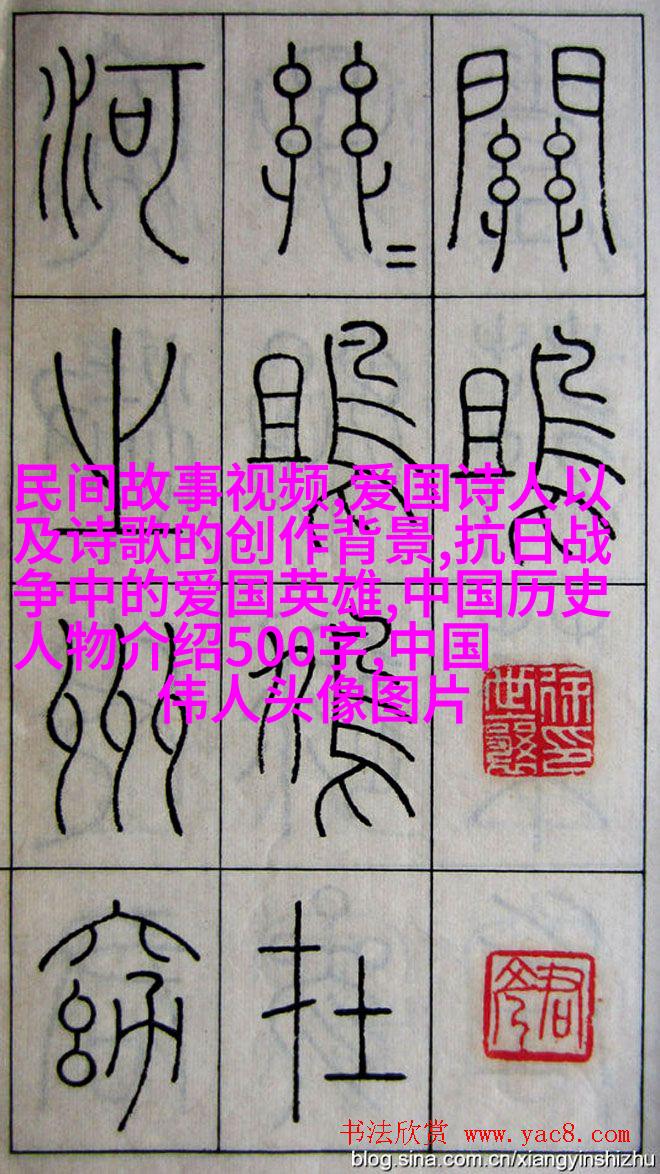 關鴡
鴡鳩在
河之州窈
民间故事视频,爱国诗人以
及诗歌的创作背景,抗日战
争中的爱国英雄,中国历史
人物介绍500字,中国
伟人头像图片
书法欣赏 www.yac8.com
blog.sina.com.cn/xiangyinshizhu